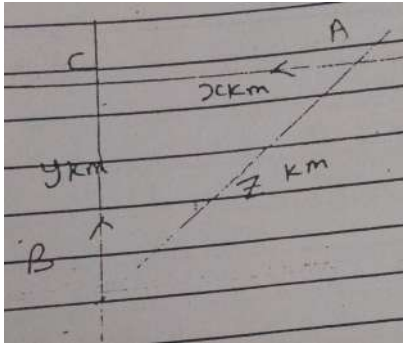 A
C
xkm
ykm
z km
B